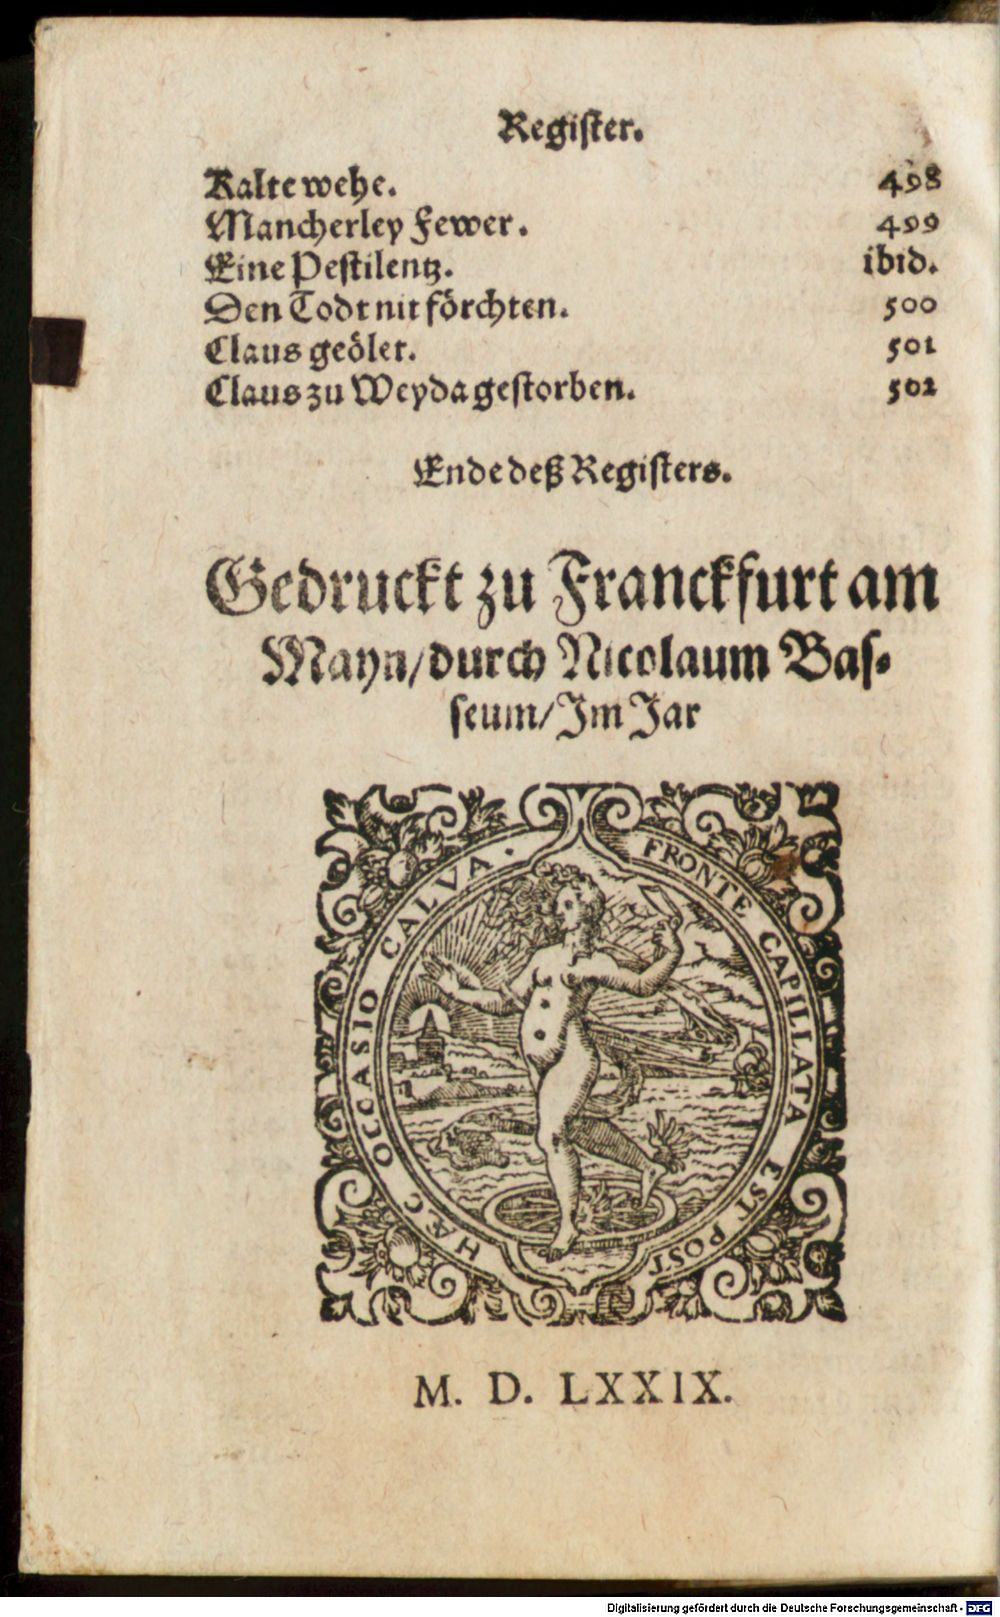 Regiſter.
Kalte wehe. 498
Mancherley Fewer. 499
Eine Peſtilentz. ibid.
Den Todt nit förchten. 500
Claus geölet. 501
Claus zu Weyda geſtorben. 502
Ende deß Regiſters.
Gedruckt zu Franckfurt am
Mayn/durch Nicolaum Baſ⸗
ſeum/Im Jar
FRONTE CAPILLATA EST POST HÆC OCCASIO CALVA.
M. D. LXXIX.
Digitalisierung gefördert durch die Deutsche Forschungsgemeinschaft - DFG